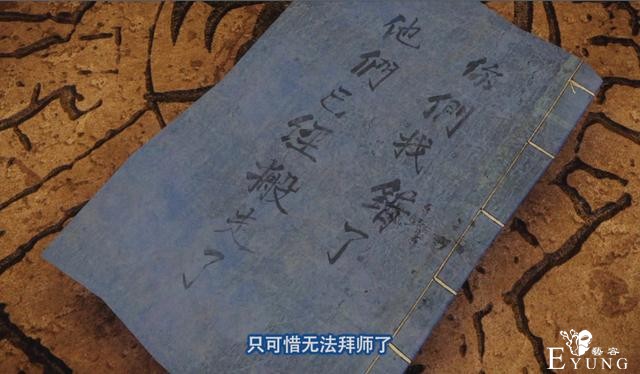 你們找錯了
他們已經搬走了
只可惜无法拜师了
藝容
EYUNG